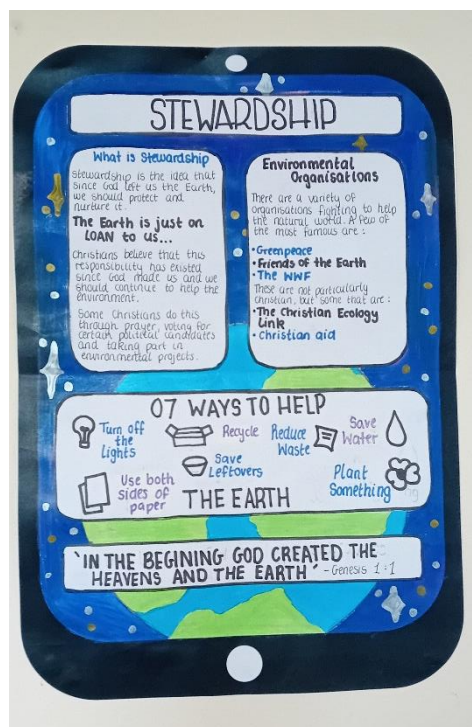 STEWARDSHIP
What is Stewardship
Stewardship is the idea that
since God left us the Earth,
we should protect and
nurture it.
The Earth is just on
LOAN to us...
Christians believe that this
responsibility has existed
since God made us and we
should continue to help the
environment.
Some Christians do this
through prayer, voting for
certain political candidates
and taking part in
environmental projects.
Environmental
Organisations
There are a variety of
organisations fighting to help
the natural world. A few of
the most famous are :
•Greenpeace
•Friends of the Earth
•The WWF
These are not particularly
christian, but some that are :
•The Christian Ecology
Link
•Christian aid
07 WAYS TO HELP
Turn off
the
Lights
Recycle
Reduce
Waste
Save
Water
Save
Leftovers
Use both
sides of
paper
Plant
Something
THE EARTH
'IN THE BEGINING GOD CREATED THE
HEAVENS AND THE EARTH' - Genesis 1:1